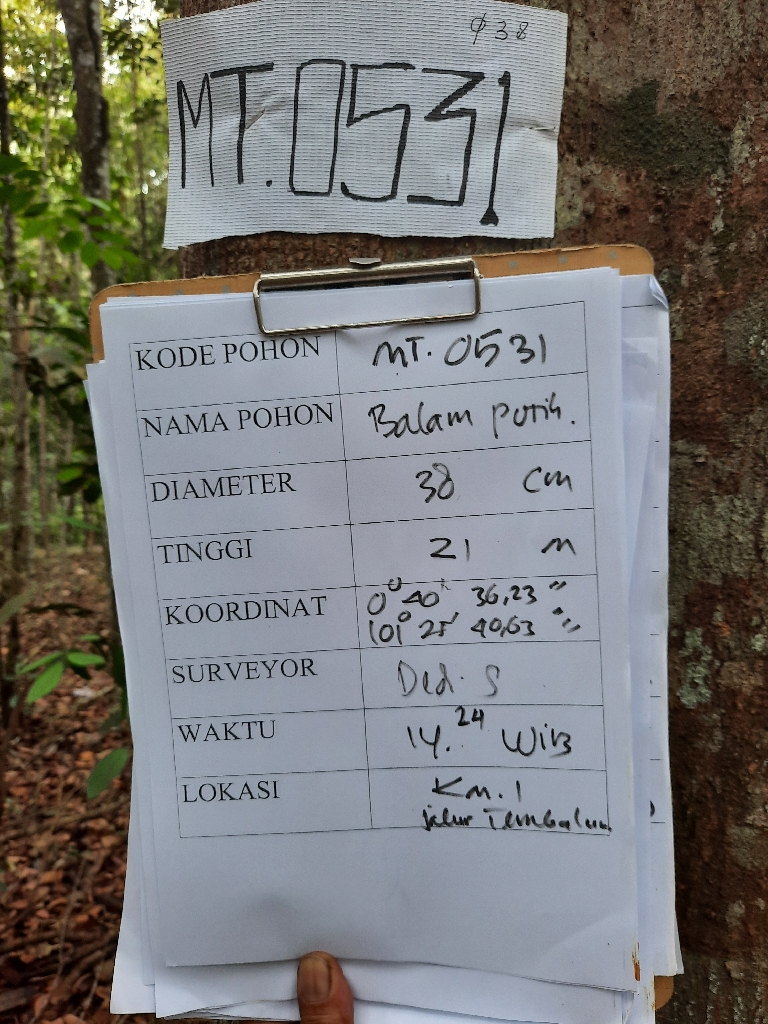 Φ 38
MT.0531
KODE POHON MT. 0531
NAMA POHON Balam putih.
DIAMETER 38 cm
TINGGI 21 m
KOORDINAT 0° 40' 36,23 "
101° 21' 40,63 "
SURVEYOR Dedi. S
WAKTU 14.24 WIB
LOKASI Km. 1
jalur Tembalun